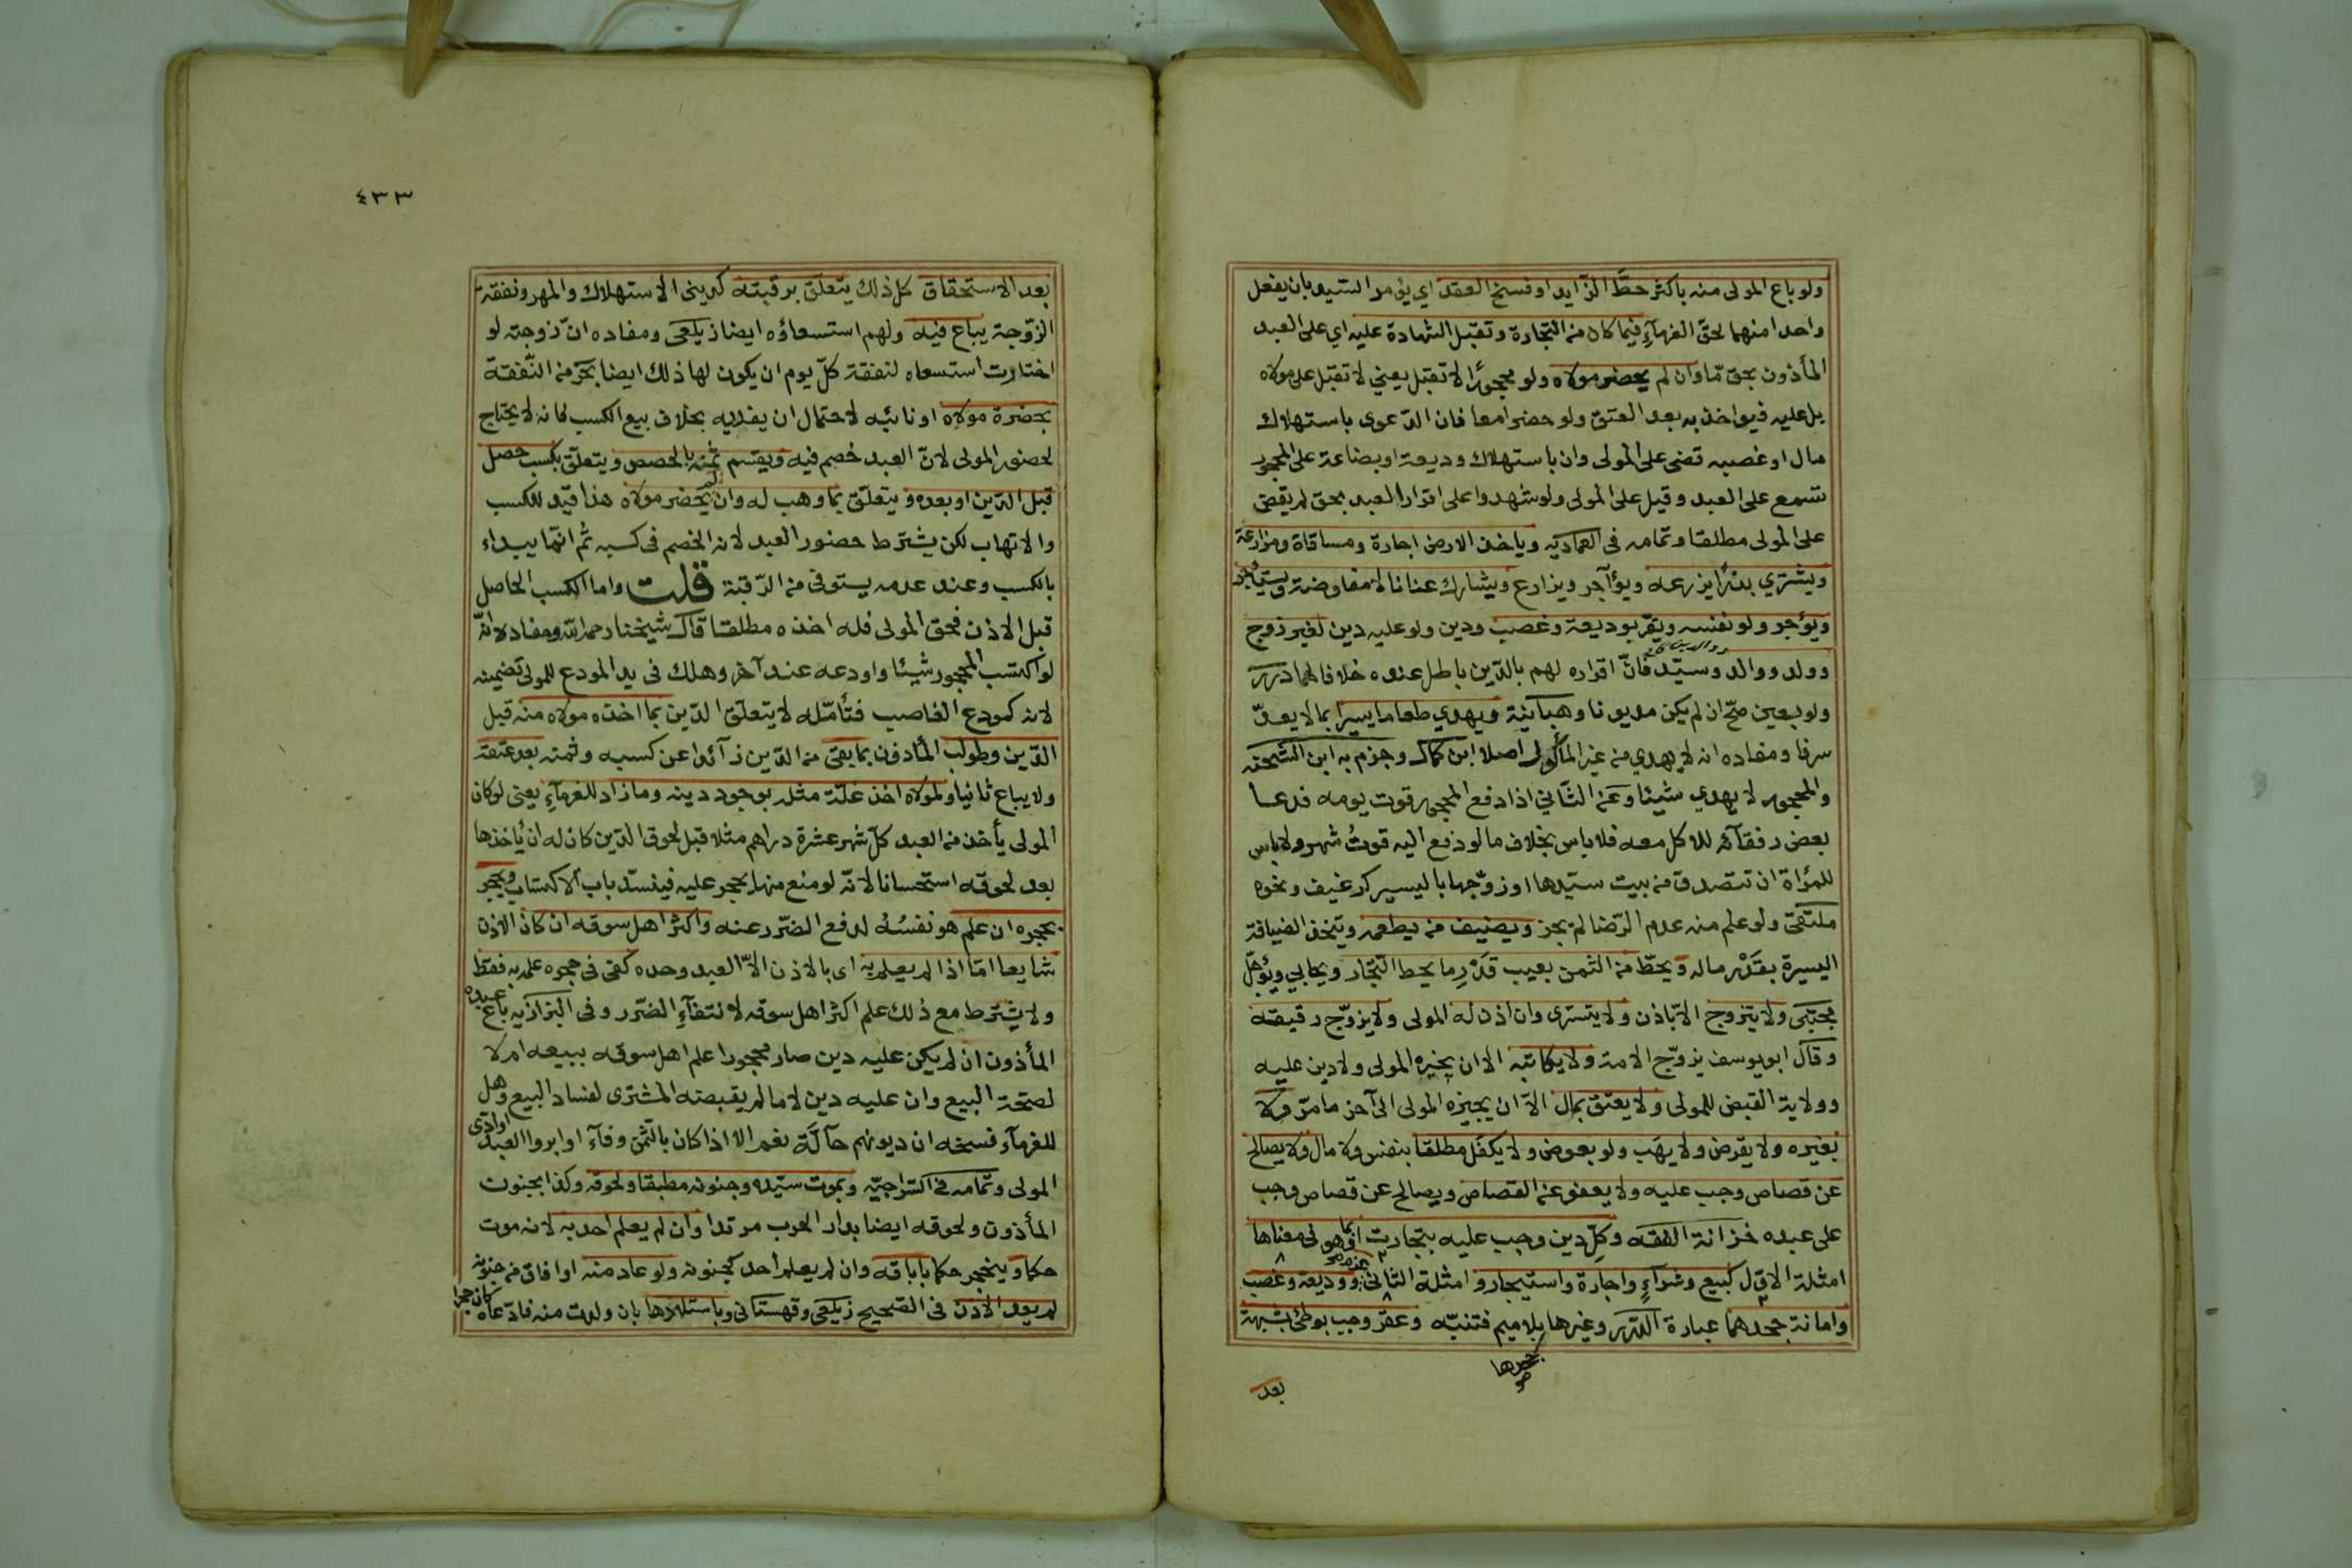 ولو باع المولى منه باكثر حطّ الزّايد او فسخ العقد اي يؤمر السّيد بان يفعل
واحدا منهما لحقّ الغرمآءِ فيما كان من التجارة وتقبل الشهادة عليه اي على العبد
المأذون بحق مّا وان لم يحضر مولاه ولو محجورًا لا تقبل يعني لا تقبل على مولاه
بل عليه فيواخذ به بعد العتق ولو حضرا معا فان الدّعوى باستهلاك
مال او غصبه قضى على المولى وان باستهلاك وديعة او بضاعة على المحجور
تسمع على العبد وقيل على المولى ولو شهدوا على اقرار العبد بحق لم يقض
على المولى مطلقا وتمامه فى العماديّه وياخذ الارض اجارة ومساقاة ومزارعة
ويشتري بذرًا يزرعه ويؤآجر ويزارع ويشارك عنانا لا مفاوضة ويستأجر
ويؤجر ولو نفسه ويقرّ بوديعة وغصب ودين ولو عليه دين لغير زوج
وولد ووالد وسيّد فانّ اقراره لهم بالدّين باطل عنده خلافا لهما درر
ولو بعين صحّ ان لم يكن مديونا وهبانية ويهدي طعاما يسيرا بما لا يعدّ
سرفا ومفاده انه لا يهدي من غير المأكول اصلا ابن كمال وجزم به ابن الشحنه
والمحجور لا يهدي شيئا وعن الثّاني اذا دفع المحجور قوت يومه فدعا
بعض رفقآئه للاكل معه فلا باس بخلاف ما لو دفع اليه قوتُ شهر ولا باس
للمرأة ان تتصدق من بيت سيّدها او زوّجها باليسير كرغيف ونحوه
ملتقى ولو علم منه عدم الرّضا لم يجز ويضيف من يطعمه ويتخذ الضيافة
اليسيرة بقَدْر ماله ويحطّ من الثمن بعيب قَدْرِ ما يحط التّجار ويحابي ويؤجّل
مجتبى ولا يتزوج الاّ باذن ولا يتسرّى وان اذن له المولى ولا يزوّج رقيقه
وقال ابو يوسف يزوّج الامة ولا يكاتبه الا ان يجيزه المولى ولا دين عليه
وولاية القبض للمولى ولا يعتق بمال الاّ ان يجيزه المولى الى آخر ما مرّ ولا
بغيره ولا يقرض ولا يهَب ولو بعوض ولا يكفل مطلقا بنفس ولا مال ولا يصالح
عن قصاص وجب عليه ولا يعفو عن القصاص ويصالح عن قصاص وجب
على عبده خزانة الفقه وكلّ دين وجب عليه بتجارت او بما هو فى معناها
امثلة الاوّل كبيع وشرآءٍ واجارة واستيجار وامثلة الثانى ووديعة وغصب
وامانة جحدهما عبارة الدّرر وغيرها بلا ميم فتنبّه وعقر وجب بوطئ بشبهة
جحدها
صح
بعد
٤٣٣
بعد الاستحقاق كل ذلك يتعلق برقبته كدين الاستهلاك والمهر ونفقة
الزّوجة يباع فيه ولهم استسعاؤه ايضا زيلعى ومفاده انّ زوجته لو
اختارت استسعاه لنفقة كلّ يوم ان يكون لها ذلك ايضا بحر من النّفقة
بحضرة مولاه او نائبه لاحتمال ان يفديه بخلاف بيع الكسب فانه لا يحتاج
لحضور المولى لانّ العبد خُصم فيه ويقسم ثمنه بالحصص ويتعلّق بكسب حصل
قبل الدّين او بعده ويتعلّق بما وهب له وان لم يحضر مولاه هذا قيد للكسب
والاتهاب لكن يشترط حضور العبد لانه الخصم فى كسبه ثم انّما يبداء
بالكسب وعند عدمه يستوفى من الرّقبة قلت واما الكسب الحاصل
قبل الاذن فحق المولى فله اخذه مطلقا قال شيخنا رحمه اللّه ومفاده انّه
لو اكتسب المحجور شيئا واودعه عند آخر وهلك فى يد المودع للمولى تضمينه
لانه كمودع الغاصب فتأمّله لا يتعلّق الدّين بما اخذه مولاه منه قبل
الدّين وطولب المأذون بما بقى من الدّين زآئدا عن كسبه وثمنه بعد عتقه
ولا يباع ثانيا ولمولاه اخذ غلّة مثله بوجود دينه وما زاد للغرمآءِ يعنى لو كان
المولى يأخذ من العبد كلّ شهر عشرة دراهم مثلا قبل لحوق الدّين كان له ان يأخذها
بعد لحوقه استحسانا لانّه لو منع منها يحجر عليه فينسدّ باب الاكتساب ويحجر
بحجره ان علم هو نفسُهُ لدفع الضّرر عنه واكثر اهل سوقه ان كان الاذن
شايعا امّا اذا لم يعلم به اى بالاذن الاّ العبد وحده كفى فى حجره علمه به فقط
ولا يشترط مع ذلك علم اكثر اهل سوقه لانتفآءِ الضّرر وفى البزازيه باع عبده
المأذون ان لم يكن عليه دين صار محجورا علم اهل سوقه ببيعه ام لا
لصحّة البيع وان عليه دين لا ما لم يقبضه المشترى لفساد البيع وهل
للغرمآء فسخه ان ديونهم حآلّة نعم الا اذا كان بالثمن وفآء او ابروا العبد او ادّى
المولى وتمامه فى السّراجيّه وبموت سيّده وجنونه مطبقا ولحوقه وكذا بجنون
المأذون ولحوقه ايضا بدار الحرب مرتدا وان لم يعلم احد به لانه موت
حكما وينحجر حكما باباقه وان لم يعلم احد كجنونه ولو عاد منه او افاق من جنونه
لم يعد الاذن فى الصّحيح زيلعى وقهستانى وباستيلادها بان ولدت منه فادّعاه كان حجرا